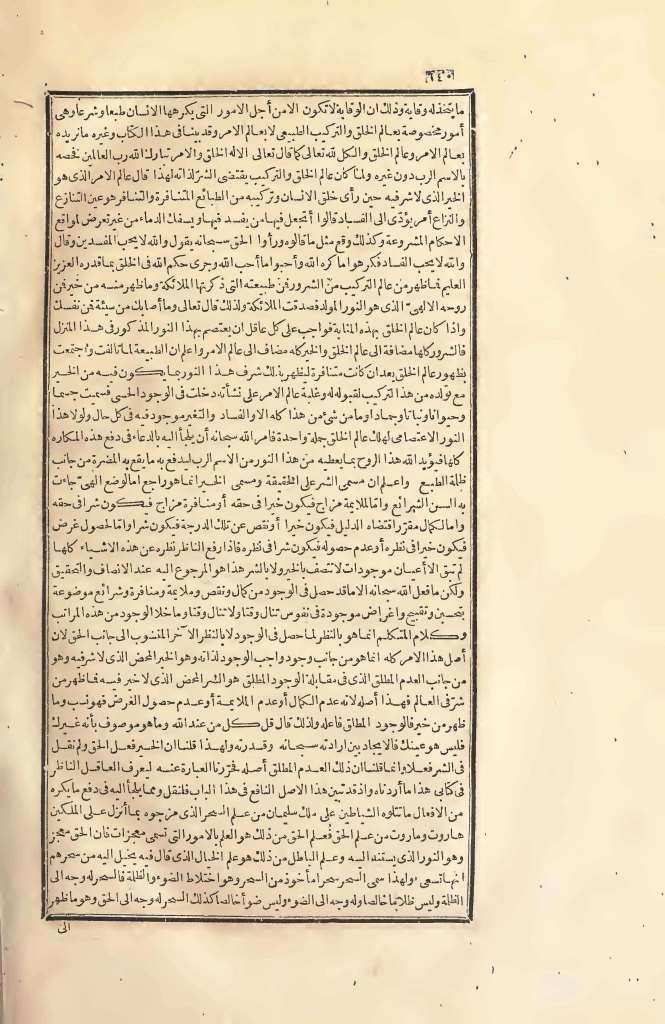 ٧٤٠
ما يتخذ له وقاية وذلك ان الوقاية لا تكون الا من أجل الامور التي يكرهها الانسان طبعا وشرعا وهي
أمور مخصوصة بعالم الخلق والتركيب الطبيعي لا بعالم الامر وقد بينا في هذا الكتاب وغيره ما نريده
بعالم الامر وعالم الخلق والكل لله تعالى كما قال تعالى الا له الخلق والامر تبارك الله رب العالمين فخصه
بالاسم الرب دون غيره ولما كان عالم الخلق والتركيب يقتضى الشر لذاته لهذا قال عالم الامر الذي هو
الخير الذي لا شر فيه حين رأى خلق الانسان وتركيبه من الطبائع المتنافرة والتنافر هو عين التنازع
والنزاع أمر يؤدّى الى الفساد قالوا أتجعل فيها من يفسد فيها ويسفك الدماء من غير تعرض لمواقع
الاحكام المشروعة وكذلك وقع مثل ما قالوه ورأوا الحق سبحانه يقول والله لا يحب المفسدين وقال
والله لا يحب الفساد فكرهوا ما كره الله وأحبوا ما أحب الله وجرى حكم الله في الخلق بما قدره العزيز
العليم فما ظهر من عالم التركيب من الشرور فن طبيعته التي ذكرتها الملائكة وما ظهر منه من خير فن
روحه الالهيّ الذي هو النور المولد فصدقت الملائكة ولذلك قال تعالى وما أصابك من سيئة فن نفسك
واذا كان عالم الخلق بهذه المثابة فواجب على كل عاقل ان يعتصم بهذا النور المذكور في هذا المنزل
فالشرور كلها مضافة الى عالم الخلق والخير كله مضاف الى عالم الامر واعلم ان الطبيعة لما تألفت واجتمعت
بظهور عالم الخلق بعد ان كانت متنافرة ليظهر بذلك شرف هذا النور بما يكون فيه من الخير
مع تولده من هذا التركيب لقبوله له وغلبة عالم الامر على نشأته دخلت في الوجود الحسى فسميت جسما
وحيوانا ونباتا وجمادا وما من شئ من هذا كله الا والفساد والتغير موجود فيه في كل حال ولولا هذا
النور الاعتصامى لهلك عالم الخلق جملة واحدة فامر الله سبحانه أن يلجأ اليه بالدعاء في دفع هذه المكاره
كلها فيؤيد الله هذا الروح بما يعطيه من هذا النور من الاسم الرب ليدفع به ما يقع به المضرة من جانب
ظلمة الطبع واعلم ان مسمى الشر على الحقيقة ومسمى الخير انما هو راجع اما لوضع الهىّ جاءت
به السن الشرائع واما لملايمة مزاج فيكون خيرا في حقه أو منافرة مزاج فيكون شرا في حقه
واما لكمال مقرّر اقتضاه الدليل فيكون خيرا أو نقص عن تلك الدرجة فيكون شرا واما لحصول غرض
فيكون خيرا في نظره أو عدم حصوله فيكون شرا في نظره فاذا رفع الناظر نظره عن هذه الاشياء كلها
لم تبق الا أعيان موجودات لا تتصف بالخير ولا بالشر هذا هو المرجوع اليه عند الانصاف والتحقيق
ولكن ما فعل الله سبحانه الا ما قد حصل في الوجود من كمال ونقص وملايمة ومنافرة وشرائع موضوعة
بتحسين وتقبيح واغراض موجودة في نفوس تنال وقتا ولا تنال وقتا وما خلا الوجود من هذه المراتب
وكلام المتكلم انما هو بالنظر لما حصل في الوجود لا بالنظر الآخر المنسوب الى جانب الحق لان
أصل هذا الامر كله انما هو من جانب وجود واجب الوجود لذاته وهو الخير المحض الذي لا شر فيه وهو
من جانب العدم المطلق الذي في مقابلة الوجود المطلق هو الشر المحض الذي لا خير فيه فما ظهر من
شرّ في العالم فهذا أصله لانه عدم الكمال أو عدم الملايمة أو عدم حصول الغرض فهو نسب وما
ظهر من خير فالوجود المطلق فاعله ولذلك قال قل كل من عند الله وما هو موصوف بأنه غيرك
فليس هو عينك فالايجاد بين ارادته سبحانه وقدرته ولهذا قلنا ان الخير فعل الحق ولم نقل
في الشر فعلا وانما قلنا ان ذلك العدم المطلق أصله فحرّرنا العبارة عنه ليعرف العاقل الناظر
في كتابى هذا ما أردناه واذ قد تبين هذا الاصل النافع في هذا الباب فلنقل ومما يلجأ اليه في دفع ما يكره
من الافعال ما تتلوه الشياطين على ملك سليمان من علم السحر الذي مزجوه بما أنزل على الملكين
هاروت وماروت من علم الحق فعلم الحق من ذلك هو العلم بالامور التي تسمى معجزات فان الحق معجز
وهو النور الذي يستند اليه وعلم الباطل من ذلك هو علم الخيال الذي قال فيه يخيل اليه من سحرهم
انها تسعى ولهذا سمى السحر سحرا مأخوذ من السحر وهو اختلاط الضوء والظلمة فالسحر له وجه الى
الظلمة وليس ظلاما خالصا وله وجه الى الضوء وليس ضوأ خالصا كذلك السحر له وجه الى الحق وهو ما ظهر
الى